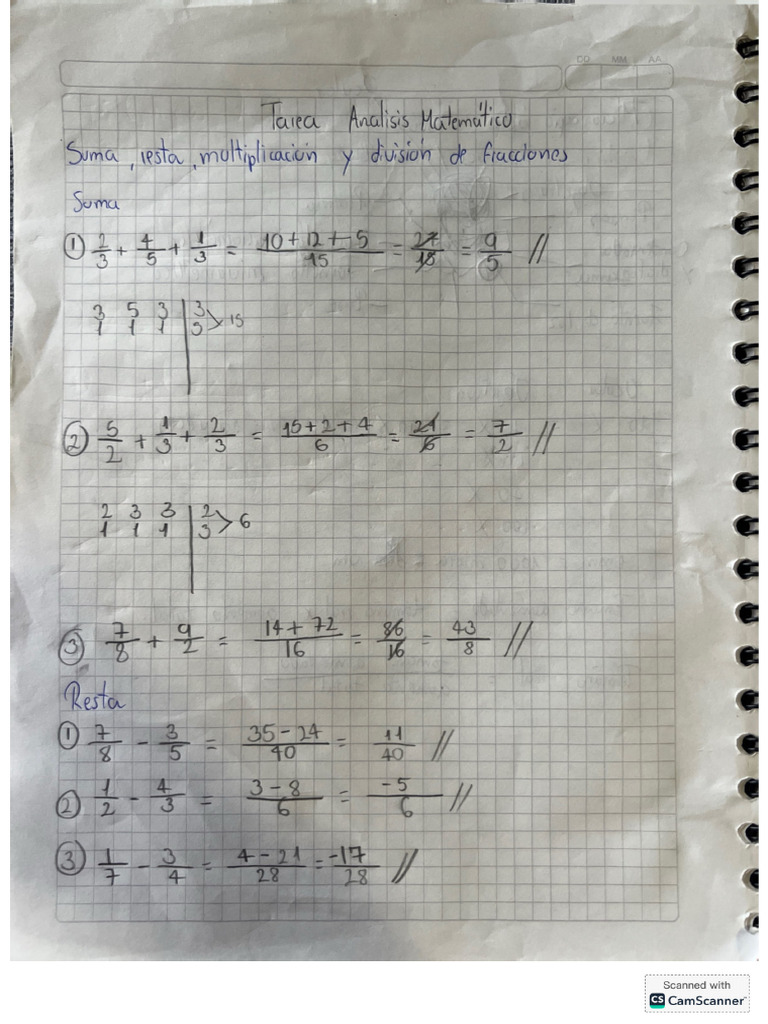 DD MM AA
Tarea Analisis Matemático
Suma, resta, multiplicación y división de fracciones
Suma
① 2/3 + 4/5 + 1/3 = 10+12+5/15 = 27/15 = 9/5 //
3 5 3 | 3 > 15
1 1 1 | 5
② 5/2 + 1/3 + 2/3 = 15+2+4/6 = 21/6 = 7/2 //
2 3 3 | 2 > 6
1 1 1 | 3
③ 7/8 + 9/2 = 14+72/16 = 86/16 = 43/8 //
Resta
① 7/8 - 3/5 = 35-24/40 = 11/40 //
② 1/2 - 4/3 = 3-8/6 = -5/6 //
③ 1/7 - 3/4 = 4-21/28 = -17/28 //
Scanned with
CS CamScanner